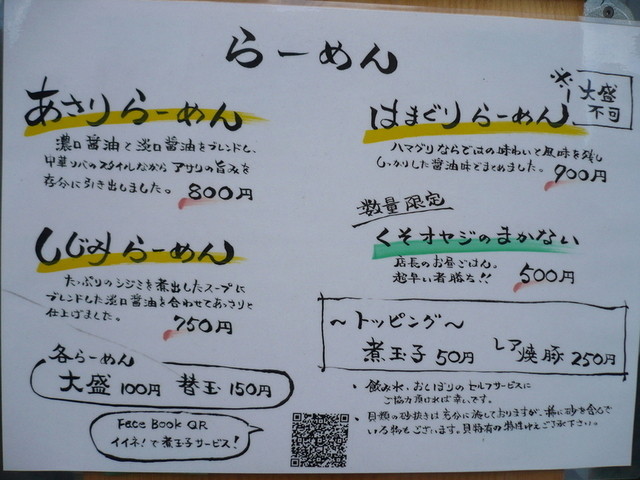 らーめん
あさりらーめん
濃口醤油と淡口醤油をブレンドし、
中華ソバのスタイルながらアサリの旨みを
存分に引き出しました。 800円
しじみらーめん
たっぷりのシジミを煮出したスープに
ブレンドした淡口醤油を合わせてあっさりと
仕上げました。 750円
各らーめん
大盛100円 替玉150円
Face Book QR
イイネ!で煮玉子サービス!
※大盛
不可
はまぐりらーめん
ハマグリならではの味わいと風味を残し
しっかりした醤油味でまとめました。 900円
数量限定
くそオヤジのまかない
店長のお昼ごはん。
超早い者勝ち!! 500円
～トッピング～
煮玉子50円 レア焼豚250円
・飲み水、おしぼりのセルフサービスに
ご協力頂ければ幸いです。
・貝類の砂抜きは充分に施しておりますが、稀に砂を含んで
いる物もございます。貝特有の特性ゆえご了承下さい。